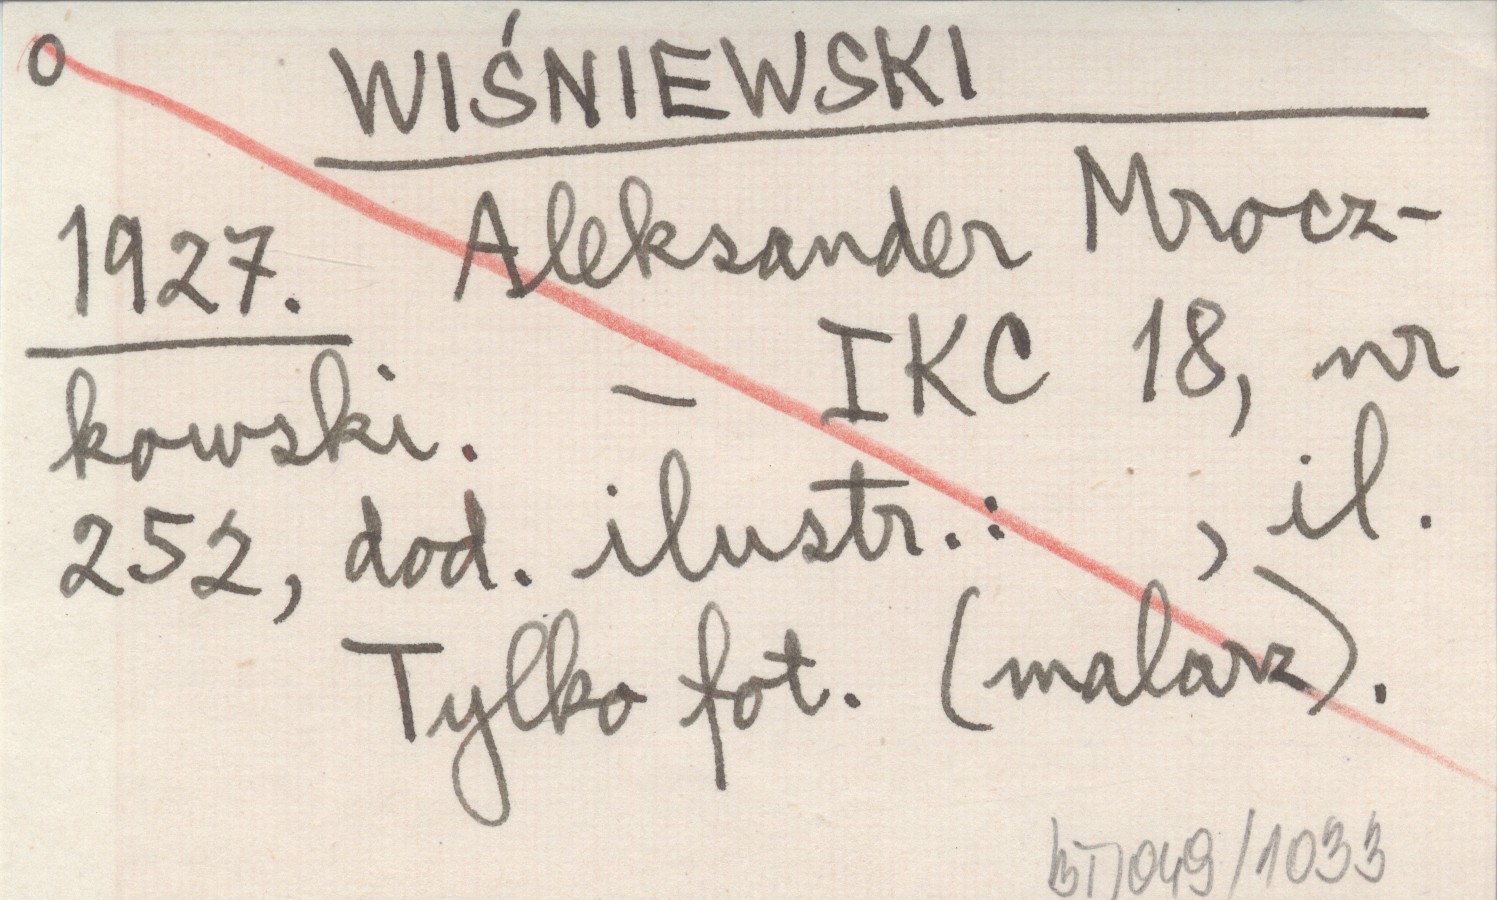 o WIŚNIEWSKI
1927. Aleksander Mrocz-
kowski. — IKC 18, nr
252, dod. ilustr.: , il.
Tylko fot. (malarz).
049/1033